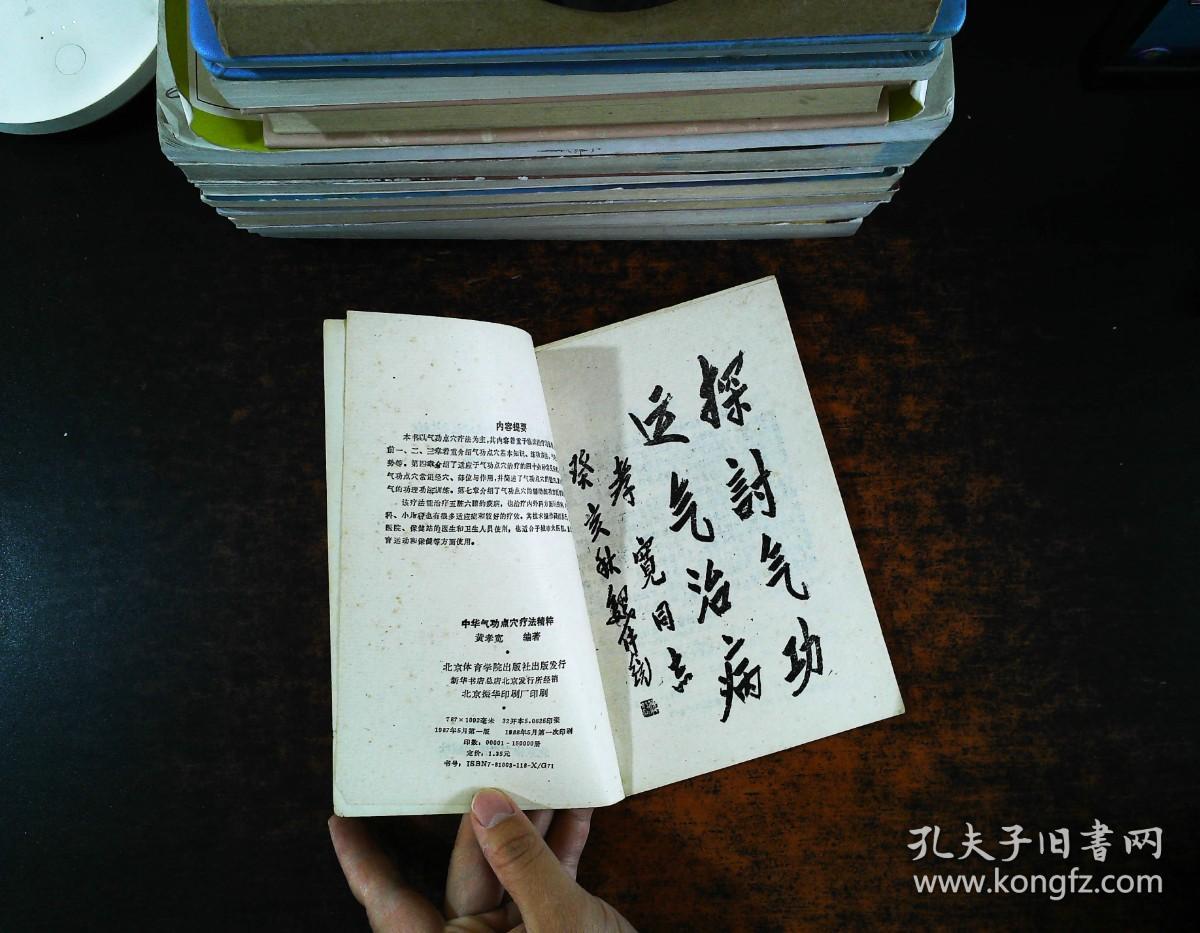 内容提要
本书以气功点穴疗法为主,其内容着重于临床治疗
前一、二、三章着重介绍气功点穴基本知识、练功
势等。第四章介绍了适应于气功点穴治疗的四十
气功点穴常用经穴、部位与作用,并简述了气功点穴
气的功理功法训练。第七章介绍了气功点穴的辅助
该疗法能治疗五脏六腑的疾病,也治疗内外科方面
科、小儿科也有很多适应症和较好的疗效。其技术操作
医院、保健站的医生和卫生人员使用,也适合于
育运动和保健等方面使用。
中华气功点穴疗法精粹
黄孝宽 编著
北京体育学院出版社出版发行
新华书店总店北京发行所经销
北京振华印刷厂印刷
787×1092毫米 32开本5.0625印张
1987年5月第一版 1988年5月第一次印刷
印数:00001-150000册
定价:1.35元
书号:ISBN7-81003-118-X/G71
探討气功
运气治病
孝寛同志
癸亥秋魏传统
孔夫子旧书网
www.kongfz.com